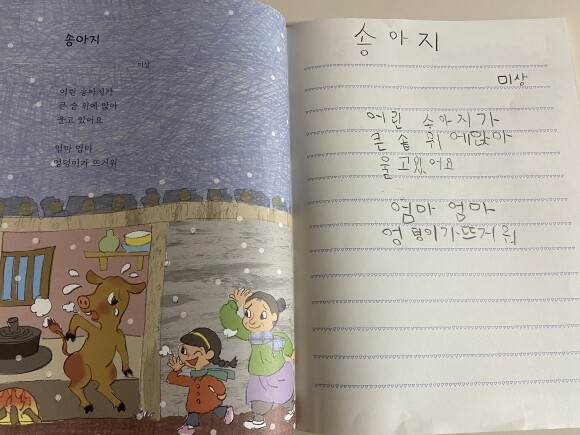 송아지
미상
어린 송아지가
큰 솥 위에 앉아
울고 있어요
엄마 엄마
엉덩이가 뜨거워
송아지
미상
어린 수아지가
큰 솥 위에앉아
울고있어요
엄마 엄마
엉덩이가뜨거워